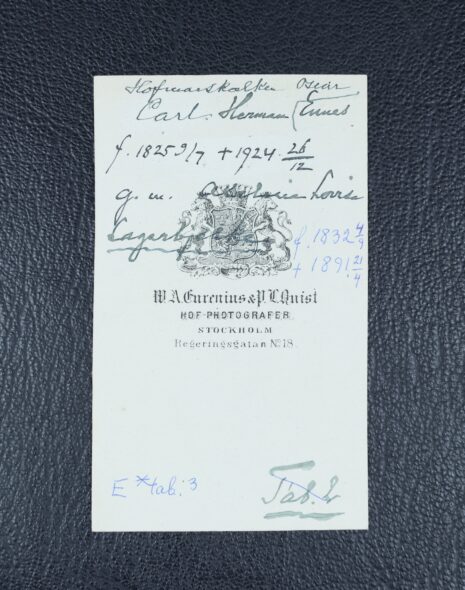 Hofmarskalken Oscar
Carl Herman (Ennes
f. 1825 9/7 + 1924 26/12
g. m. Lovisa
f. 1832 4/9
+ 1891 21/4
W. A. Eurenius & P. L. Quist
HOF-PHOTOGRAFER
STOCKHOLM
Regeringsgatan No 18.
E *tab. 3
Tab. 2